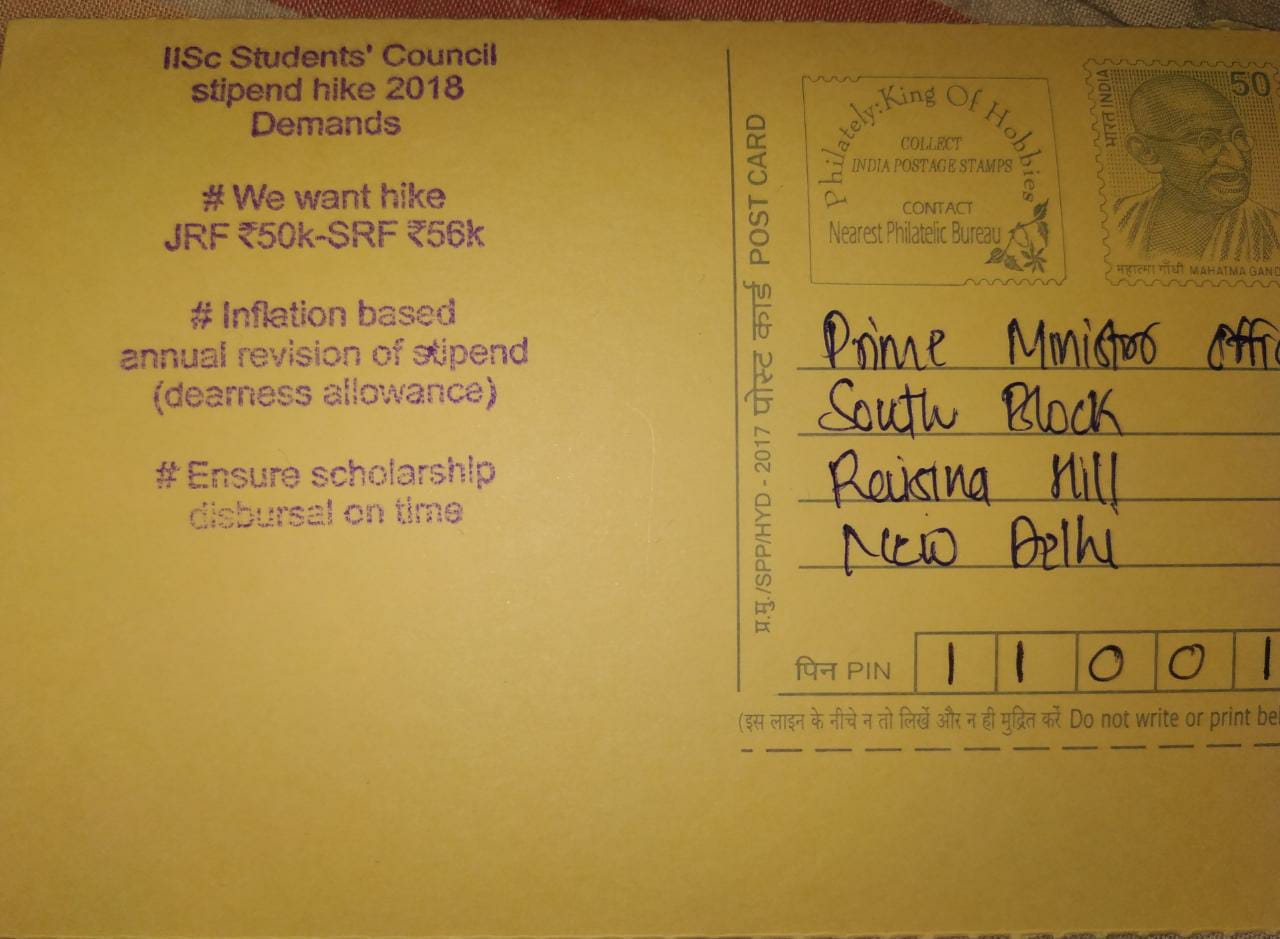 IISc Students' Council
stipend hike 2018
Demands
# We want hike
JRF ₹50k-SRF ₹56k
# Inflation based
annual revision of stipend
(dearness allowance)
# Ensure scholarship
disbursal on time
प्र.मु./SPP/HYD - 2017 पोस्ट कार्ड POST CARD
Philately:King Of Hobbies
COLLECT
INDIA POSTAGE STAMPS
CONTACT
Nearest Philatelic Bureau
भारत INDIA
50
महात्मा गाँधी MAHATMA GAND
Prime Minister offic
South Block
Raisina Hill
New Delhi
पिन PIN 1 1 0 0 1
(इस लाइन के नीचे न तो लिखें और न ही मुद्रित करें Do not write or print bel